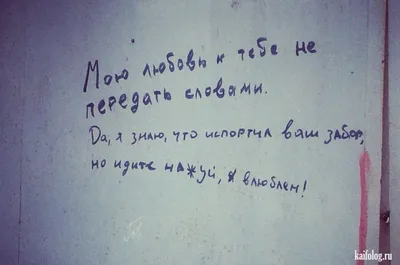 Мою любовь к тебе не
передать словами.
Да, я знаю, что испортил ваш забор,
но идите нажуй, я влюблен!
kaifolog.ru